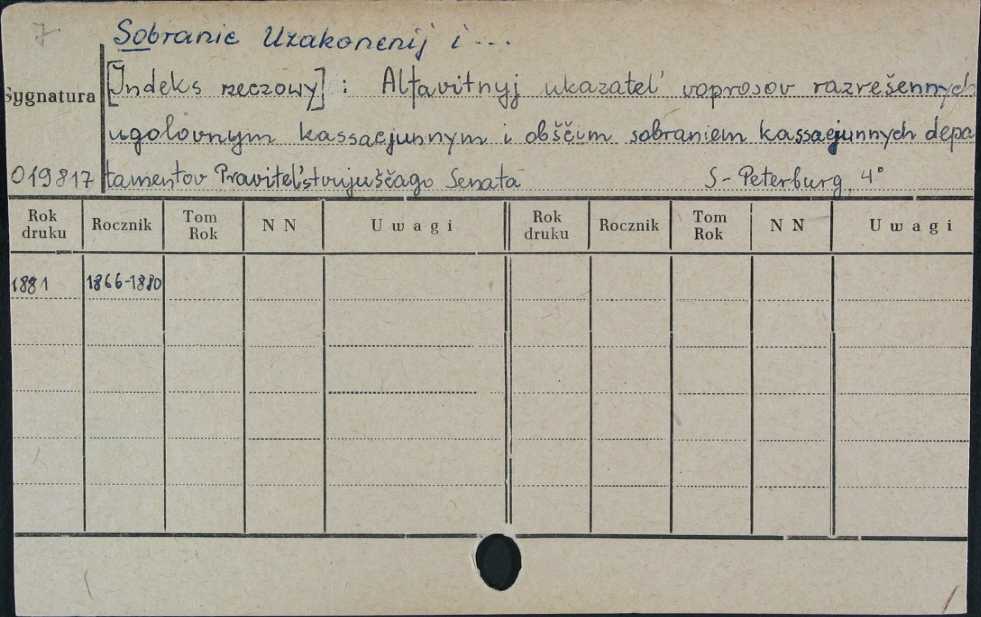 7
Sobranie Uzakonenij i ...
Sygnatura [Indeks rzeczowy] : Alfavitnyj ukazatel' voprosov razrešennych
ugolovnym kassacjunnym i obščim sobraniem kassacjunnych depa
019817 tamentov Pravitel'stvujuščago Senata S-Peterburg, 4°
Rok druku Rocznik Tom Rok N N Uwagi Rok druku Rocznik Tom Rok N N Uwagi
1881 1866-1880